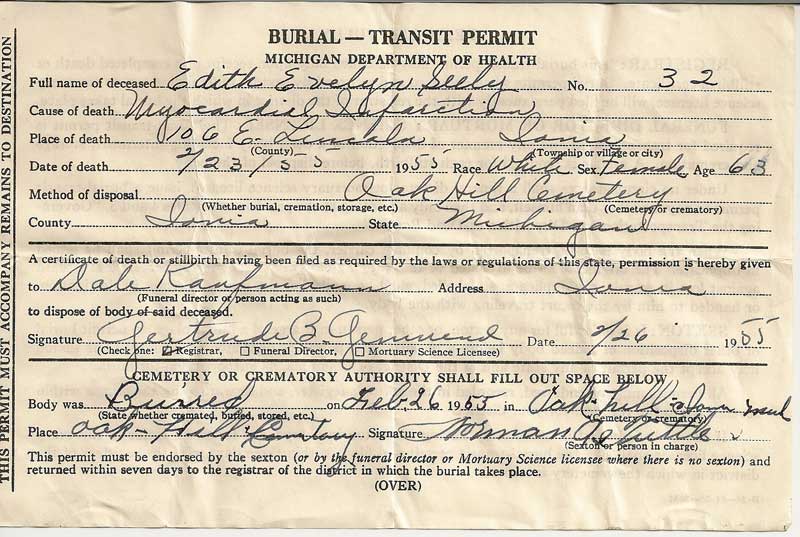 THIS PERMIT MUST ACCOMPANY REMAINS TO DESTINATION
BURIAL — TRANSIT PERMIT
MICHIGAN DEPARTMENT OF HEALTH
Full name of deceased Edith Evelyn Seely No. 32
Cause of death Myocardial Infarction
Place of death 106 E. Lincoln Ionia
(County) (Township or village or city)
Date of death 2/23/55 1955 Race White Sex Female Age 63
Method of disposal Oak Hill Cemetery
(Whether burial, cremation, storage, etc.) (Cemetery or crematory)
County Ionia State Michigan
A certificate of death or stillbirth having been filed as required by the laws or regulations of this state, permission is hereby given
to Dale Kaufmann Address Ionia
(Funeral director or person acting as such)
to dispose of body of said deceased.
Signature Gertrude B. Date 2/26 1955
(Check one: Registrar, Funeral Director, Mortuary Science Licensee)
CEMETERY OR CREMATORY AUTHORITY SHALL FILL OUT SPACE BELOW
Body was Buired on Feb. 26 1955 in Oak-Hill
(State whether cremated, buried, stored, etc.) (Cemetery or crematory)
Place Oak-Hill Signature
(Sexton or person in charge)
This permit must be endorsed by the sexton (or by the funeral director or Mortuary Science licensee where there is no sexton) and
returned within seven days to the registrar of the district in which the burial takes place.
(OVER)